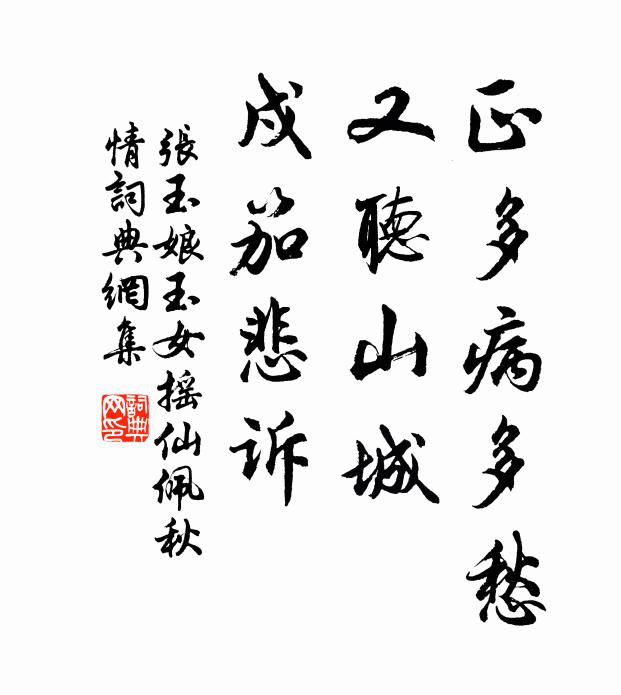 正多病多愁
又聽山城
戍笳悲诉
張玉娘玉女摇仙佩秋
情詞典網集
詞典
网印